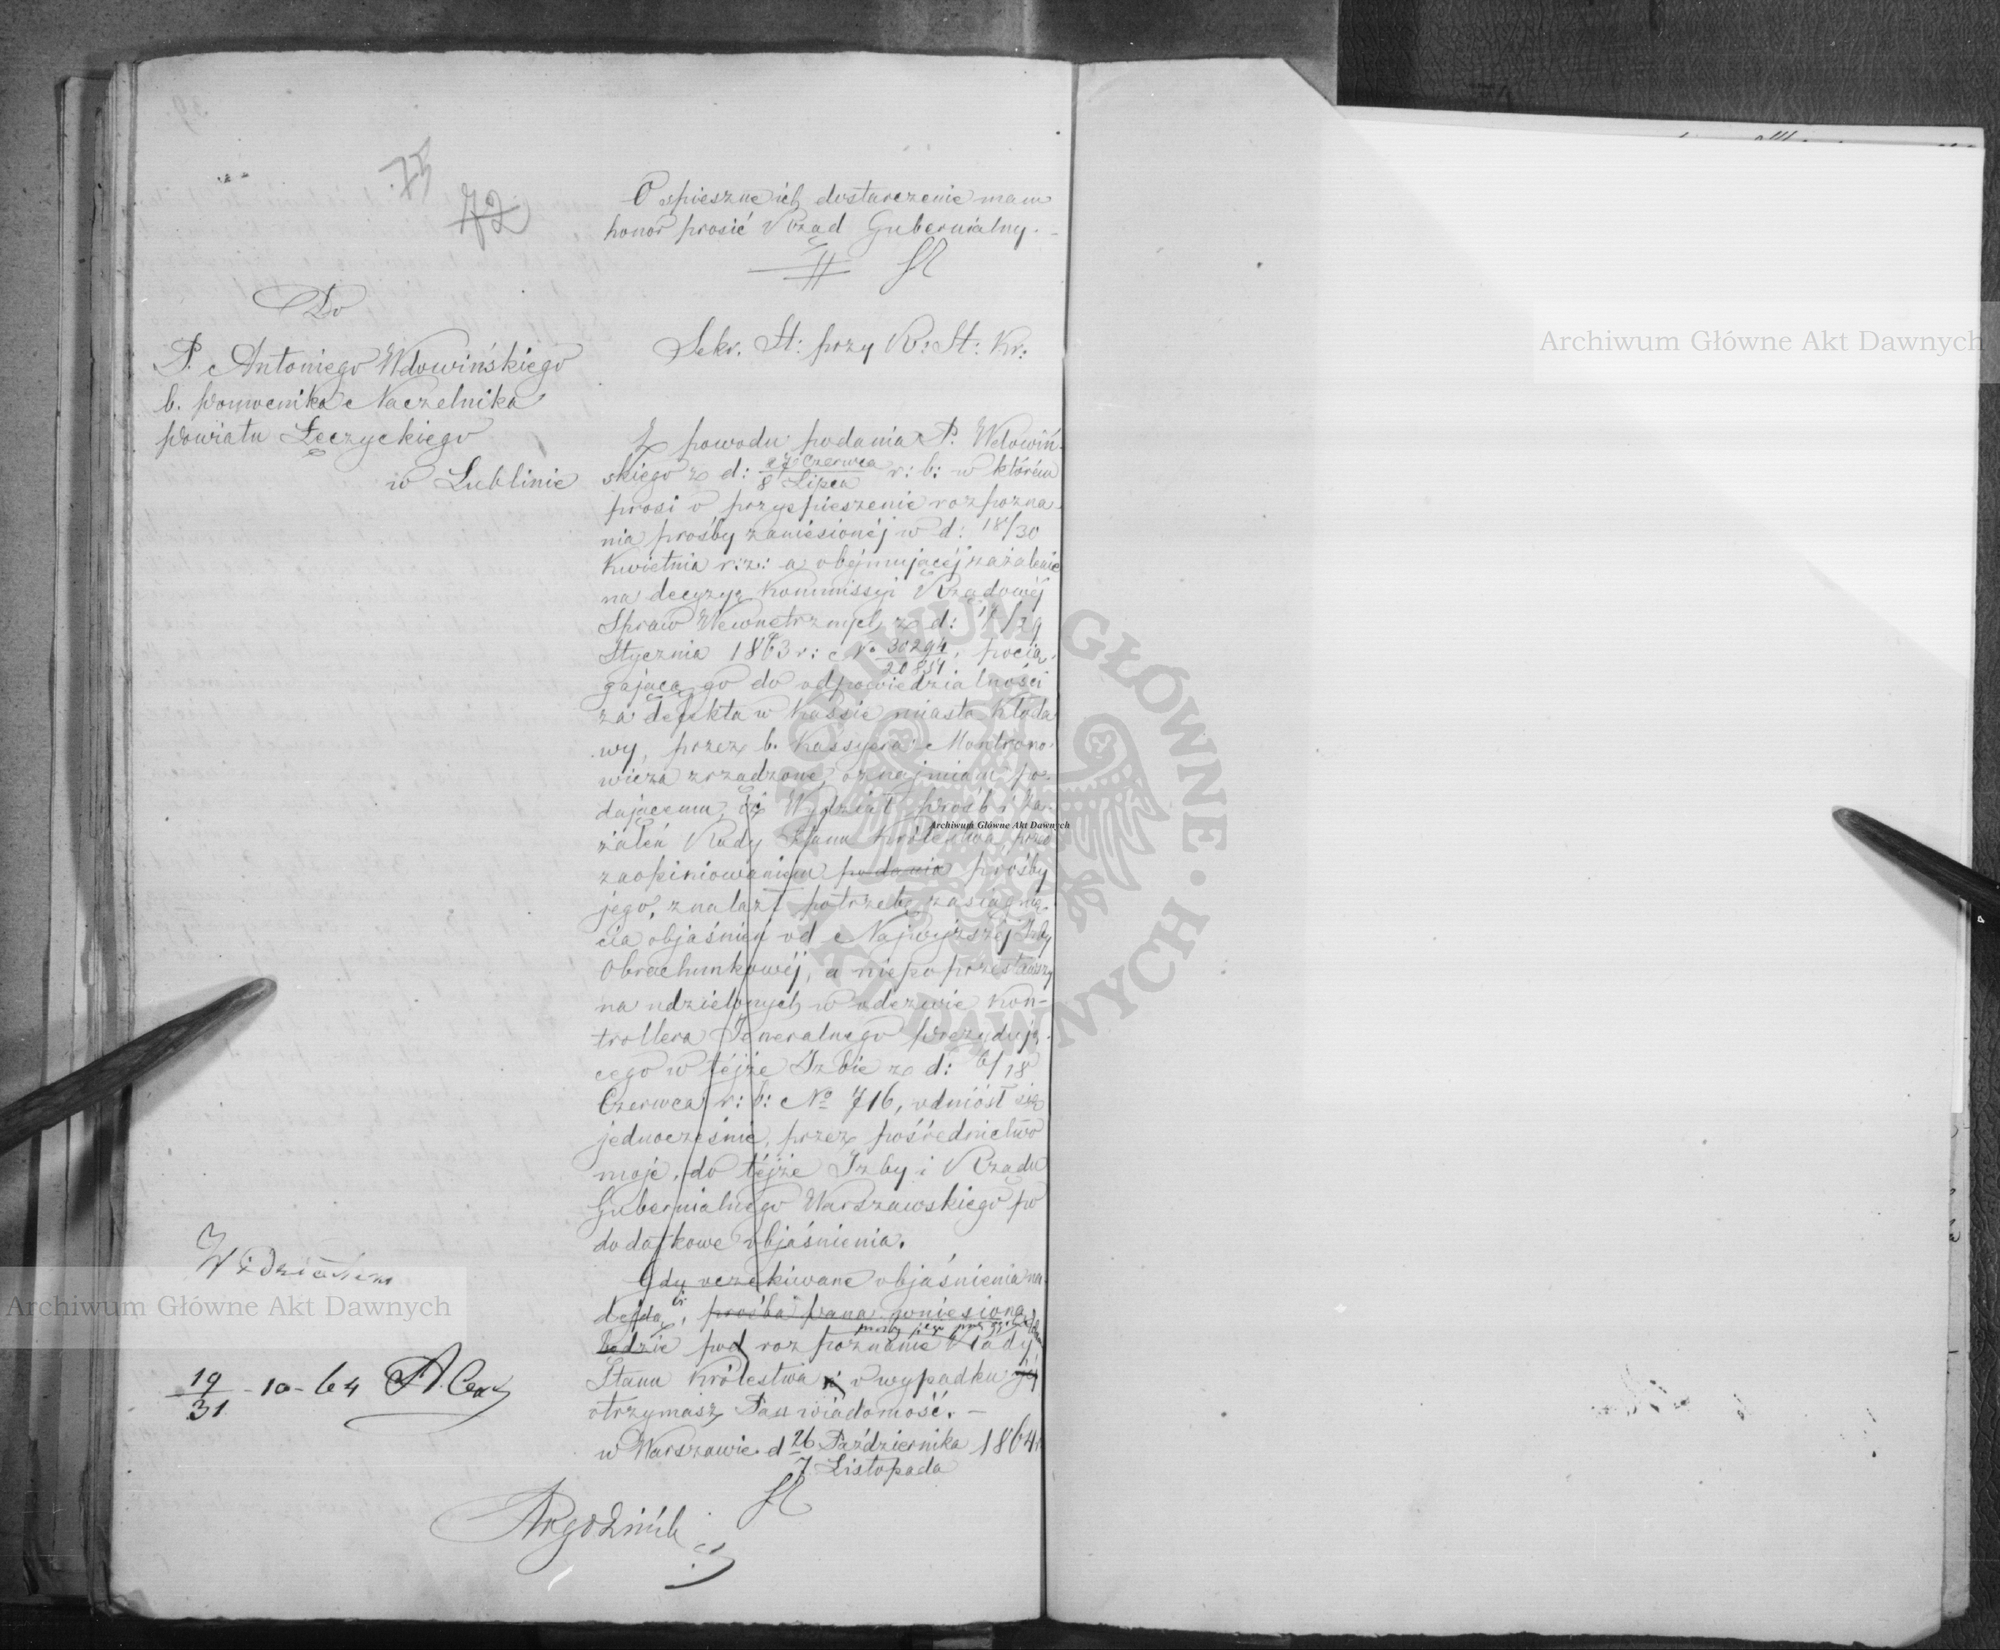 75
72
O spieszne ich dostarczenie mam
honor prosić Rząd Gubernialny. –
Do
P. Antoniego Wdowińskiego
b. Pomocnika Naczelnika
Powiatu Łęczyckiego
w Lublinie
Sekr. St: przy R: St: Kr:
Z powodu podania P. Wdowiń-
skiego z d: Czerwca / 8 Lipca r: b: w którem
prosi o przyspieszenie rozpozna-
nia prośby zaniesionéj w d: 18/30
Kwietnia r: z: a obéjmującéj zażalenie
na decyzyą Kommissyi Rządowéj
Spraw Wewnętrznych z d: 17/29
Stycznia 1863 r: No 30294/20851, pocią-
gającą go do odpowiedzialności
za defekta w Kassie miasta Kłoda-
wy, przez b. Kassyera
wicza zrządzone, oznajmiam po-
dającemu, że Wydział Prośb i Za-
żaleń Rady Stanu Królestwa, przed
zaopiniowaniem podania prośby
jego, znalazł potrzebę zasiągnię-
cia objaśnień od Najwyższéj Izby
Obrachunkowéj, a niepoprzestawszy
na udzielonych w odezwie Kon-
trollera Jeneralnego Prezydują-
cego w téjże Izbie z d: 6/18
Czerwca r: b: No 716, odniósł się
jednocześnie, przez pośrednictwo
moje, do téjże Izby i Rządu
Gubernialnego Warszawskiego po
dodatkowe objaśnienia.
Gdy oczekiwane objaśnienia na-
dejdą, prośba Pana wniesioną
prośby jego
będzie pod rozpoznanie Rady
Stanu Królestwa i o wypadku jéj
otrzymasz Pan wiadomość. –
w Warszawie d 26 Października / 7 Listopada 1864 r
Widziałem
19/31 - 10 - 64
Archiwum Główne Akt Dawnych
Archiwum Główne Akt Dawnych
Archiwum Główne Akt Dawnych
ARCHIWUM GŁÓWNE · AKT DAWNYCH ·